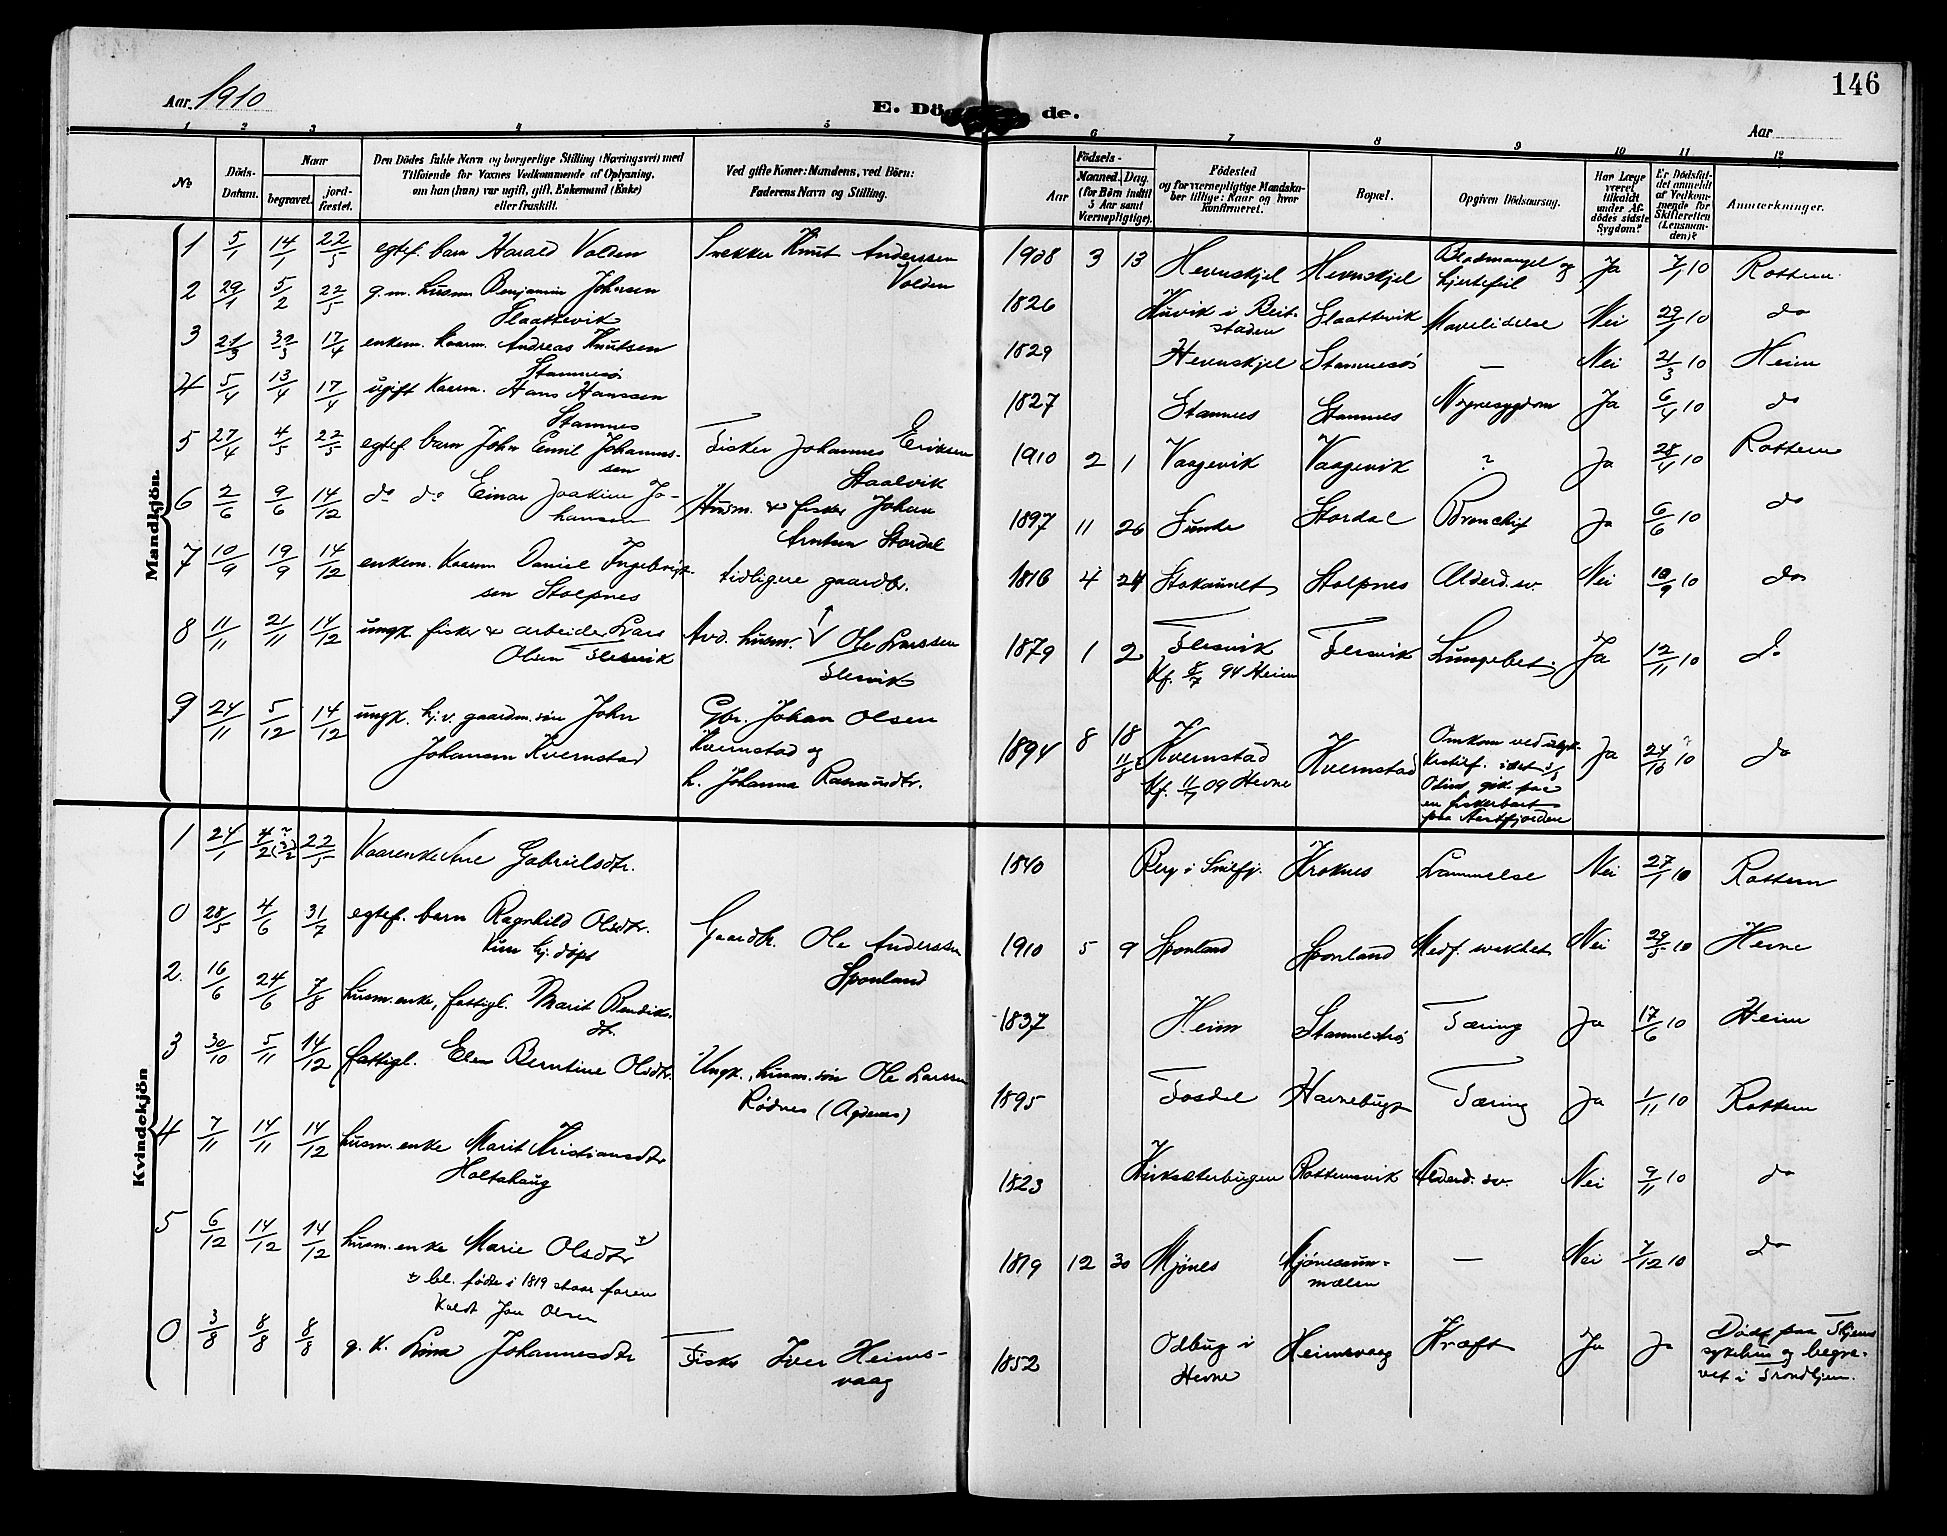 146
Aar 1910
E. Dö de.
Aar
1 2 3 4 5 6 7 8 9 10 11 12
No
Döds-Datum.
Naar
begravet.
jord-fæstet.
Den Dödes fulde Navn og borgerlige Stilling (Næringsvei) med
Tilföiende for Voxnes Vedkommende af Oplysning,
om han (hun) var ugift, gift, Enkemand (Enke)
eller fraskilt.
Ved gifte Koner: Mandens, ved Börn:
Faderens Navn og Stilling.
Aar
Födsels-
Maaned. Dag.
(for Börn indtil
5 Aar samt
Værnepligtige).
Födested
og for værnepligtige Mandska-
ber tillige: Naar og hvor
Konfirmeret.
Bopæl.
Opgiven Dödsaarsag.
Har Læge
været
tilkaldt
under Af-
dödes sidste
Sygdom?
Er Dödsfal-
det anmeldt
af Vedkom-
mende for
Skifteretten
(Lensman-
den)?
Anmærkninger.
Mandkjön.
1 5/1 14/1 22/5 egtef. barn Harald Volden Snekker Knut Anderssen
Volden
1908 3 13 Hevnskjel Hevnskjel Blodmangel og
hjertefeil Ja 7/1 10 Rottem
2 29/1 5/2 22/5 g. m. husm. Benjamin Johnsen
Slaattevik
1826 Kuvik i Reit-
staden Slaattevik Mavelidelse Nei 29/1 10 do
3 21/3 17/4 enkem. kaarm. Andreas Knutsen
Stamnesø
1829 Hevnskjel Stamnesø — Nei 21/3 10 Heim
4 5/4 13/4 17/4 ugift kaarm. Hans Hanssen
Stamnes
1827 Stamnes Stamnes Nyresygdom Ja 6/4 10 do
5 27/4 4/5 22/5 egtef. barn John Emil Johannes-
sen Fisker Johannes Eriksen
Staalvik
1910 2 1 Vaagevik Vaagevik ? Ja 28/4 10 Rottem
6 2/6 9/6 14/12 do do Einar Joakim Jo-
hansen Husm. & fisker Johan
Arntsen Stordal
1897 11 26 Sunde Stordal Bronchit Ja 6/6 10 do
7 10/9 19/9 14/12 enkem. Kaarm Daniel Ingebrigt-
sen Stolpnes tidligere gaardbr.
1816 4 24 Stokaunet Stolpnes Alderd. sv. Nei 10/9 10 do
8 11/11 21/11 14/12 ungk. fisker & arbeider Lars
Olsen Flesvik Avd. husm. Ole Larssen
Flesvik
1879 1 2 Flesvik
Kf. 8/7 94 Heim Flesvik Lungebet. Ja 12/11 10 do
9 24/11 5/12 14/12 ungk. hj.v. gaardm. søn John
Johansen Kvernstad Gbr. Johan Olsen
Kvernstad og
h. Johanna Rasmusdtr.
1894 8 18 Kvernstad
Kf. 11/7 09 Hevne Kvernstad Omkom ved
Odins gik paa
en fiskerbaat
paa Aastfjorden Ja 24/10 10 do
Kvindekjön
1 24/1 4/2 22/5 Kaarenke Ane Gabrielsdtr.
1840 Berg i Snilfj. Kroknes Lammelse Nei 27/1 10 Rottem
0 28/5 4/6 31/7 egtef. barn Ragnhild Olsdtr.
kun hj. døpt Gaardbr. Ole Anderssen
Sponland
1910 5 9 Sponland Sponland Medf. svakhet Nei 29/5 10 Hevne
2. 16/6 24/6 7/8 husm. enke, fattigl. Marit Bendiks-
dtr.
1837 Heim Stamnestrø Tæring Ja 17/6 10 Heim
3 30/10 5/11 14/12 fattigl. Elen Berntine Olsdtr. Ungk., husm. søn Ole Larssen
Rødnes (Agdenes)
1895 Fosdal Havnebugt Tæring Ja 1/11 10 Rottem
4 7/11 14/11 14/12 husm. enke Marit Kristiansdtr
Holtahaug
1823 Kirksæterbugen Rottemsvik Alderd. sv. Nei 9/11 10 do
5 6/12 14/12 14/12 husm. enke Marie Olsdtr
bl. fødte i 1819 staar faren
kaldt Jon Olsen
1819 12 30 Mjønes Mjønessun-
mælen — Nei 7/12 10 do
0 3/8 8/8 8/8 g. k. Lina Johannesdtr Fisker Iver Heims-
vaag
1852 Odbug i
Hevne Heimsvaag Kræft Ja Ja Død paa Thjems
sykehus og begra-
vet i Trondhjem.